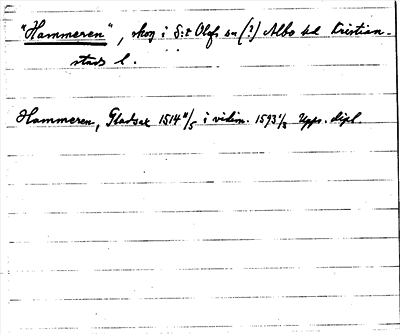 "Hammeren", skog i S:t Olofs sn (?) Albo hd Kristian-
stads l.
Hammeren, Gladsax 1514 11/5 i vidim. 1593 1/8 Upps. dipl.